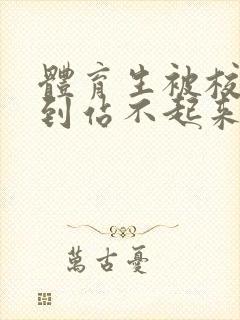 體育生被校
到佔不起來
萬古憂